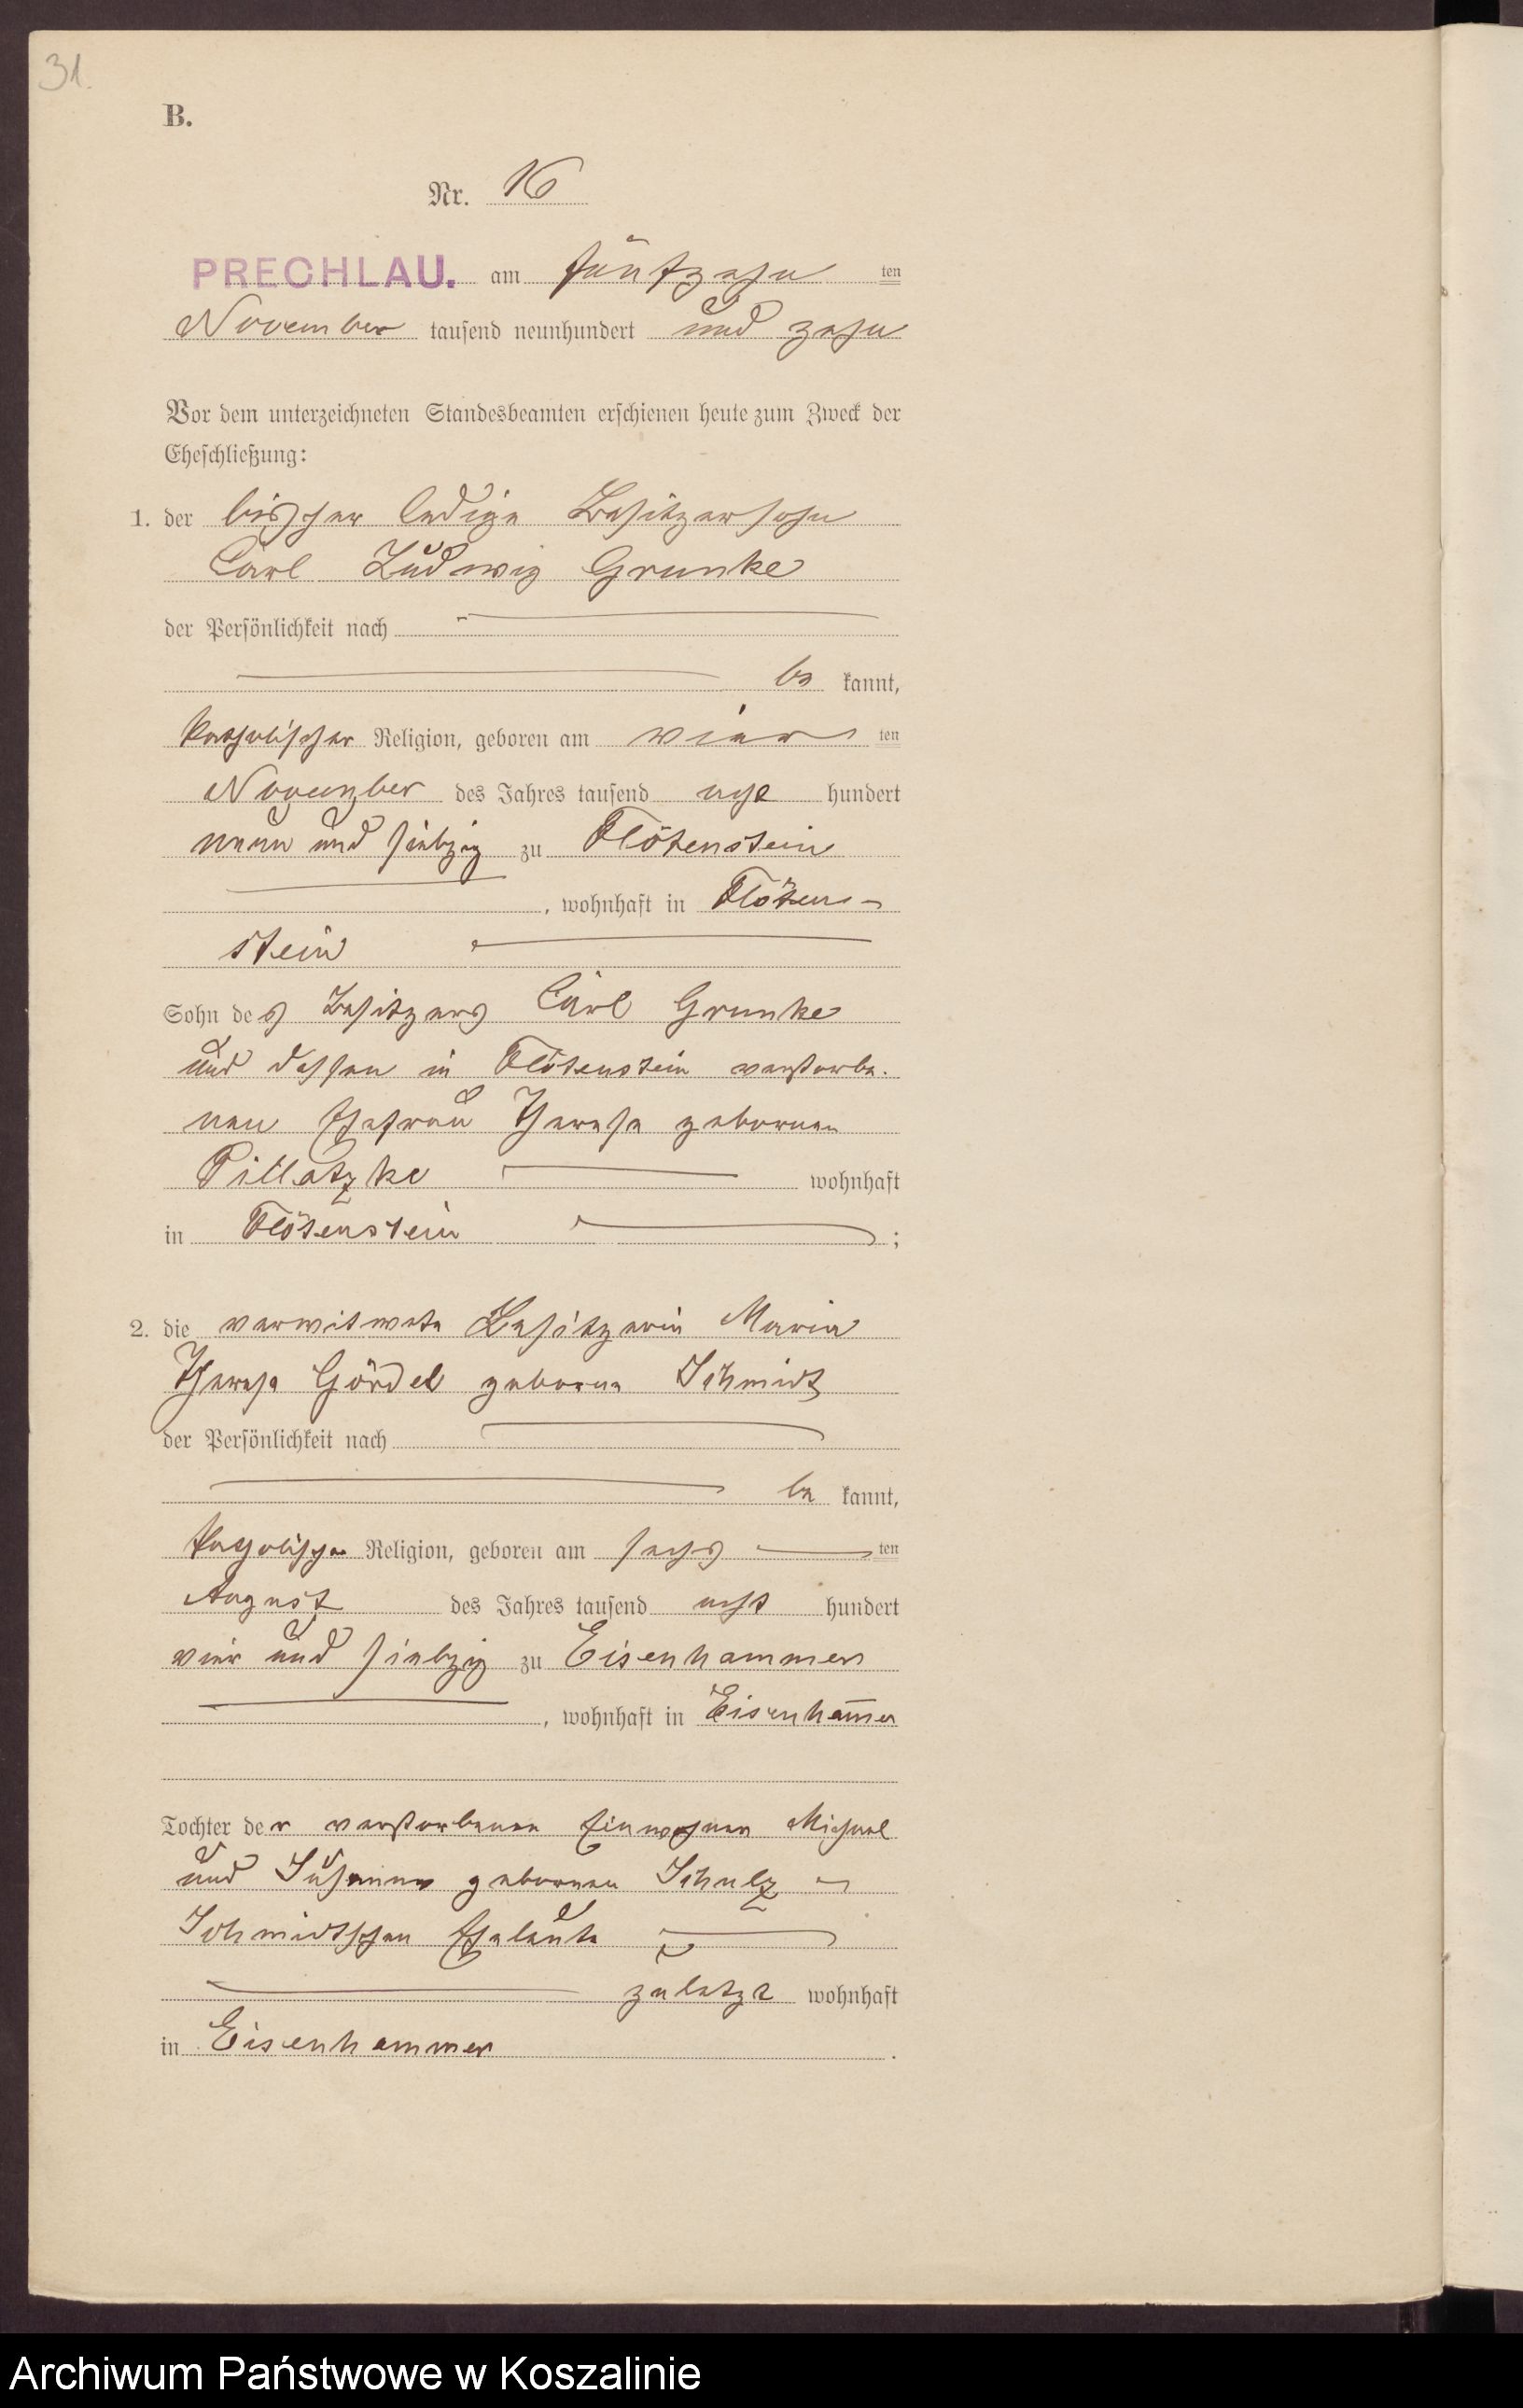 31.
B.
Nr. 16
PRECHLAU. am fünfzehn ten
November tausend neunhundert und zehn
Vor dem unterzeichneten Standesbeamten erschienen heute zum Zweck der
Eheschließung:
1. der bisher ledige Besitzersohn
Carl Ludwig Grunke
der Persönlichkeit nach
be kannt,
katholischer Religion, geboren am vier ten
November des Jahres tausend acht hundert
neun und siebzig zu Flötenstein
, wohnhaft in Flöten-
stein
Sohn des Besitzers Carl Grunke
und dessen in Flötenstein verstorbe-
nen Ehefrau Therese geborenen
Pillatzke wohnhaft
in Flötenstein ;
2. die verwitwete Besitzerin Maria
Therese Gördel geborene Schmidt
der Persönlichkeit nach
be kannt,
katholischer Religion, geboren am sechs ten
August des Jahres tausend acht hundert
vier und siebzig zu Eisenhammer
, wohnhaft in Eisenham̅er
Tochter der verstorbenen Einwohner Michael
und Susanna geborenen Schulz -
Schmidtschen Eheleute
zuletzt wohnhaft
in Eisenhammer .
Archiwum Państwowe w Koszalinie